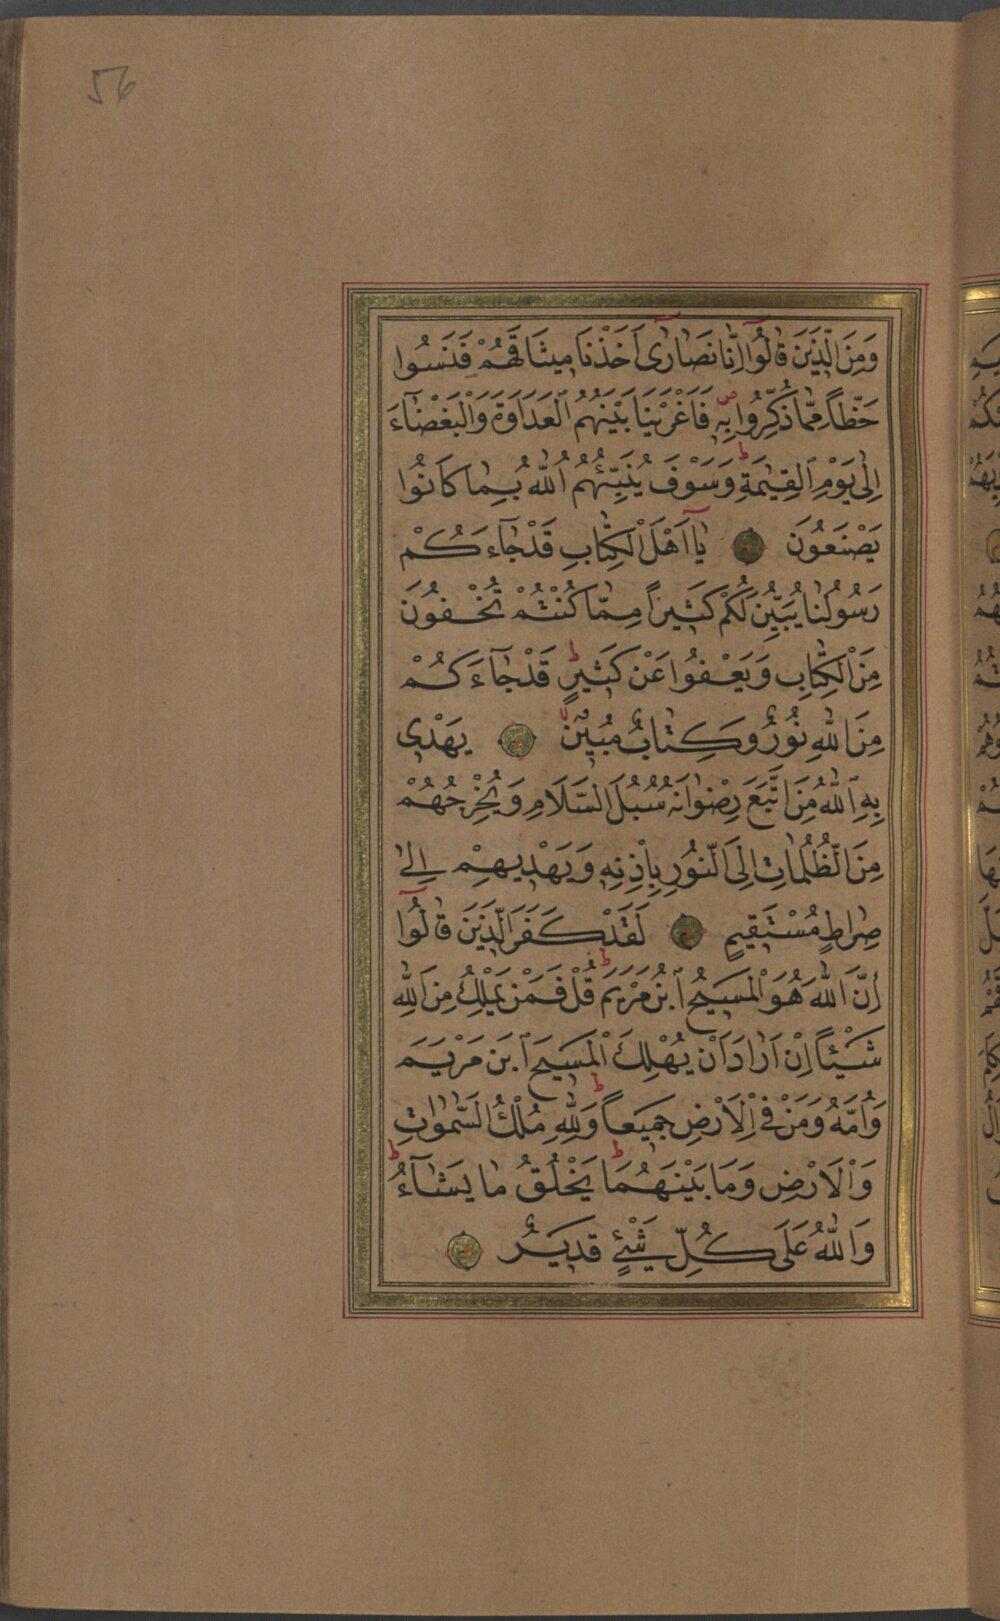 56
وَمِنَ الَّذٖينَ قَالُٓوا اِنَّا نَصَارٰٓى اَخَذْنَا مٖيثَاقَهُمْ فَنَسُوا
حَظًّا مِمَّا ذُكِّرُوا بِهٖ ۖ فَاَغْرَيْنَا بَيْنَهُمُ الْعَدَاوَةَ وَالْبَغْضَٓاءَ
اِلٰى يَوْمِ الْقِيٰمَةِ ۜ وَسَوْفَ يُنَبِّئُهُمُ اللّٰهُ بِمَا كَانُوا
يَصْنَعُونَ يَٓا اَهْلَ الْكِتَابِ قَدْ جَٓاءَكُمْ
رَسُولُنَا يُبَيِّنُ لَكُمْ كَثٖيرًا مِمَّا كُنْتُمْ تُخْفُونَ
مِنَ الْكِتَابِ وَيَعْفُوا عَنْ كَثٖيرٍ ط قَدْ جَٓاءَكُمْ
مِنَ اللّٰهِ نُورٌ وَكِتَابٌ مُبٖينٌ لا يَهْدٖى
بِهِ اللّٰهُ مَنِ اتَّبَعَ رِضْوَانَهُ سُبُلَ السَّلَامِ وَيُخْرِجُهُمْ
مِنَ الظُّلُمَاتِ اِلَى النُّورِ بِاِذْنِهٖ وَيَهْدٖيهِمْ اِلٰى
صِرَاطٍ مُسْتَقٖيمٍ لَقَدْ كَفَرَ الَّذٖينَ قَالُٓوا
اِنَّ اللّٰهَ هُوَ الْمَسٖيحُ ابْنُ مَرْيَمَ ط قُلْ فَمَنْ يَمْلِكُ مِنَ اللّٰهِ
شَيْئًا اِنْ اَرَادَ اَنْ يُهْلِكَ الْمَسٖيحَ ابْنَ مَرْيَمَ
وَاُمَّهُ وَمَنْ فِى الْاَرْضِ جَمٖيعًا ط وَلِلّٰهِ مُلْكُ السَّمٰوَاتِ
وَالْاَرْضِ وَمَا بَيْنَهُمَا ط يَخْلُقُ مَا يَشَٓاءُ ط
وَاللّٰهُ عَلٰى كُلِّ شَيْءٍ قَدٖيرٌ